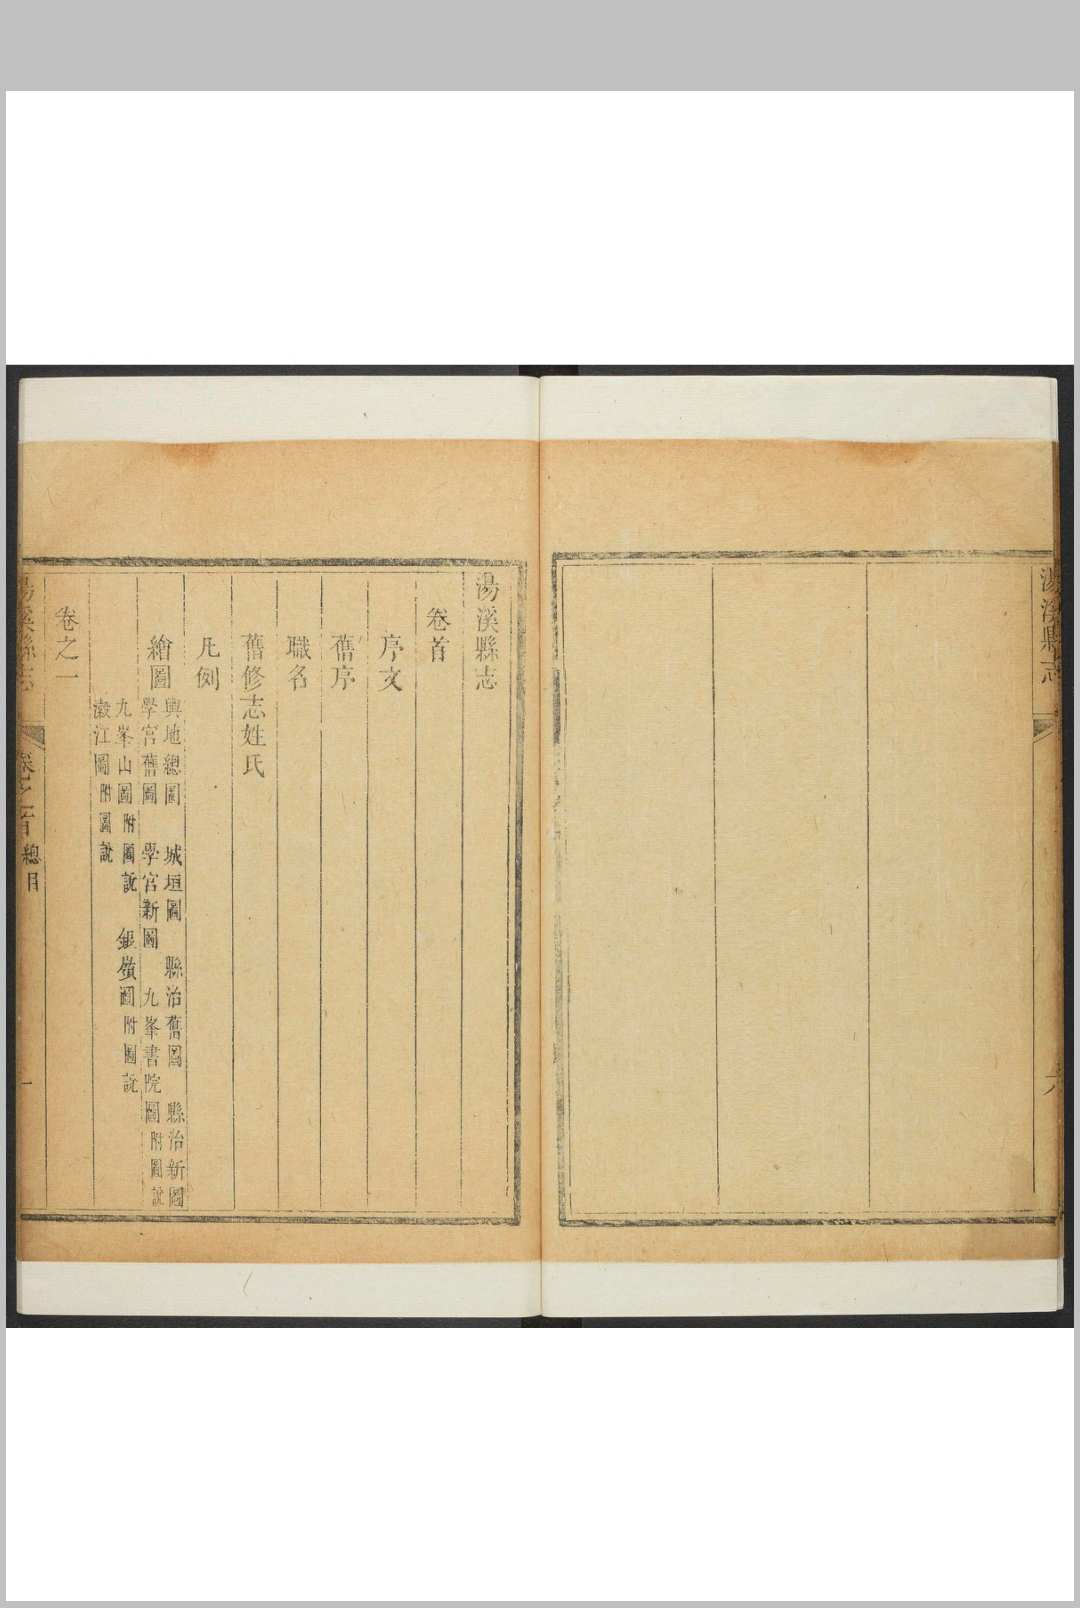 湯溪縣志
六
湯溪縣志
卷首
序文
舊序
職名
舊修志姓氏
凡例
繪圖
輿地總圖 城垣圖 縣治舊圖 縣治新圖
學宮舊圖 學宮新圖 九峯書院圖附圖說
九峯山圖附圖說 銀嶺圖附圖說
瀫江圖附圖說
卷之一
湯溪縣志 卷之首 總目 一